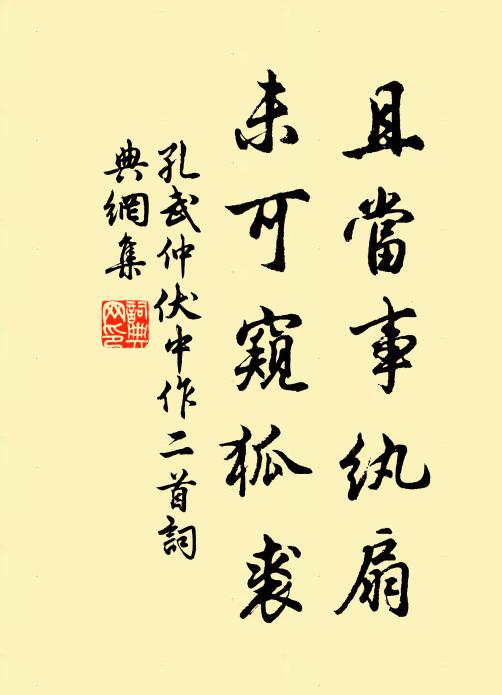 且當事紈扇
未可窺狐裘
孔武仲伏中作二首詞
典網集
詞典
网印